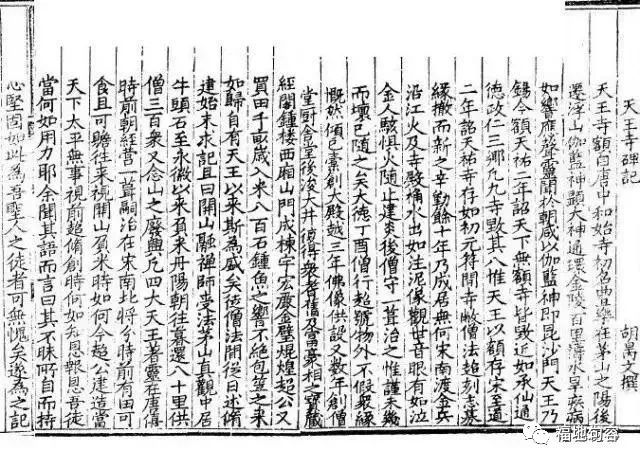 天王寺碑記
胡嵩文撰
天王寺額自唐中和始寺初名曲藥在茅山之陽後
遷浮山伽藍神顯大神通環金陵百里禱水旱疾病
如響應茲靈聞於朝咸以伽藍神即毘沙門天王乃
錫今額天祐二年詔天下無額寺皆毀近如承仙通
德政仁三鄉凡九寺毀其八惟天王以額存宋至道
二年詔天祐寺存如初元符間寺敝僧法超刻志募
緣撤而新之辛勤餘十年乃成居無何宋南渡金兵
沿江火及寺殿桷水出如注泥像觀世音眼有如泣
金人駭懼火隨止建炎後僧守一葺治之惟謹未幾
而壞已隨之矣大德丁酉僧行超號物外不假眾緣
慨然傾已橐創大殿越三年佛像供設又數年創僧
堂厨舍
經閣鍾樓西廂山門成棟宇宏麗金壁焜煌超公又
買田千畝歲入米八百石鍾魚之響不絕包笠之來
如歸自有天王以來斯為盛矣徒僧法開徑日述脩
建始末求記且曰開山融禪師受法茅山真觀中居
牛頭石至永徽以來負來丹陽朝往暮還八十里供
僧三百眾又念山之廢興凡四大天王著靈在唐得
時前朝經營一葺嗣治在宋南北將分時前有田可
食且可贍往來視開山負米時如何今超公建造當
天下太平無事視前超脩創時何如無恩報恩吾徒
當何如用力耶余聞其語而言曰其不昧所自而持
心堅固如此為吾聖人之徒者可無愧矣遂為之記
福地句容